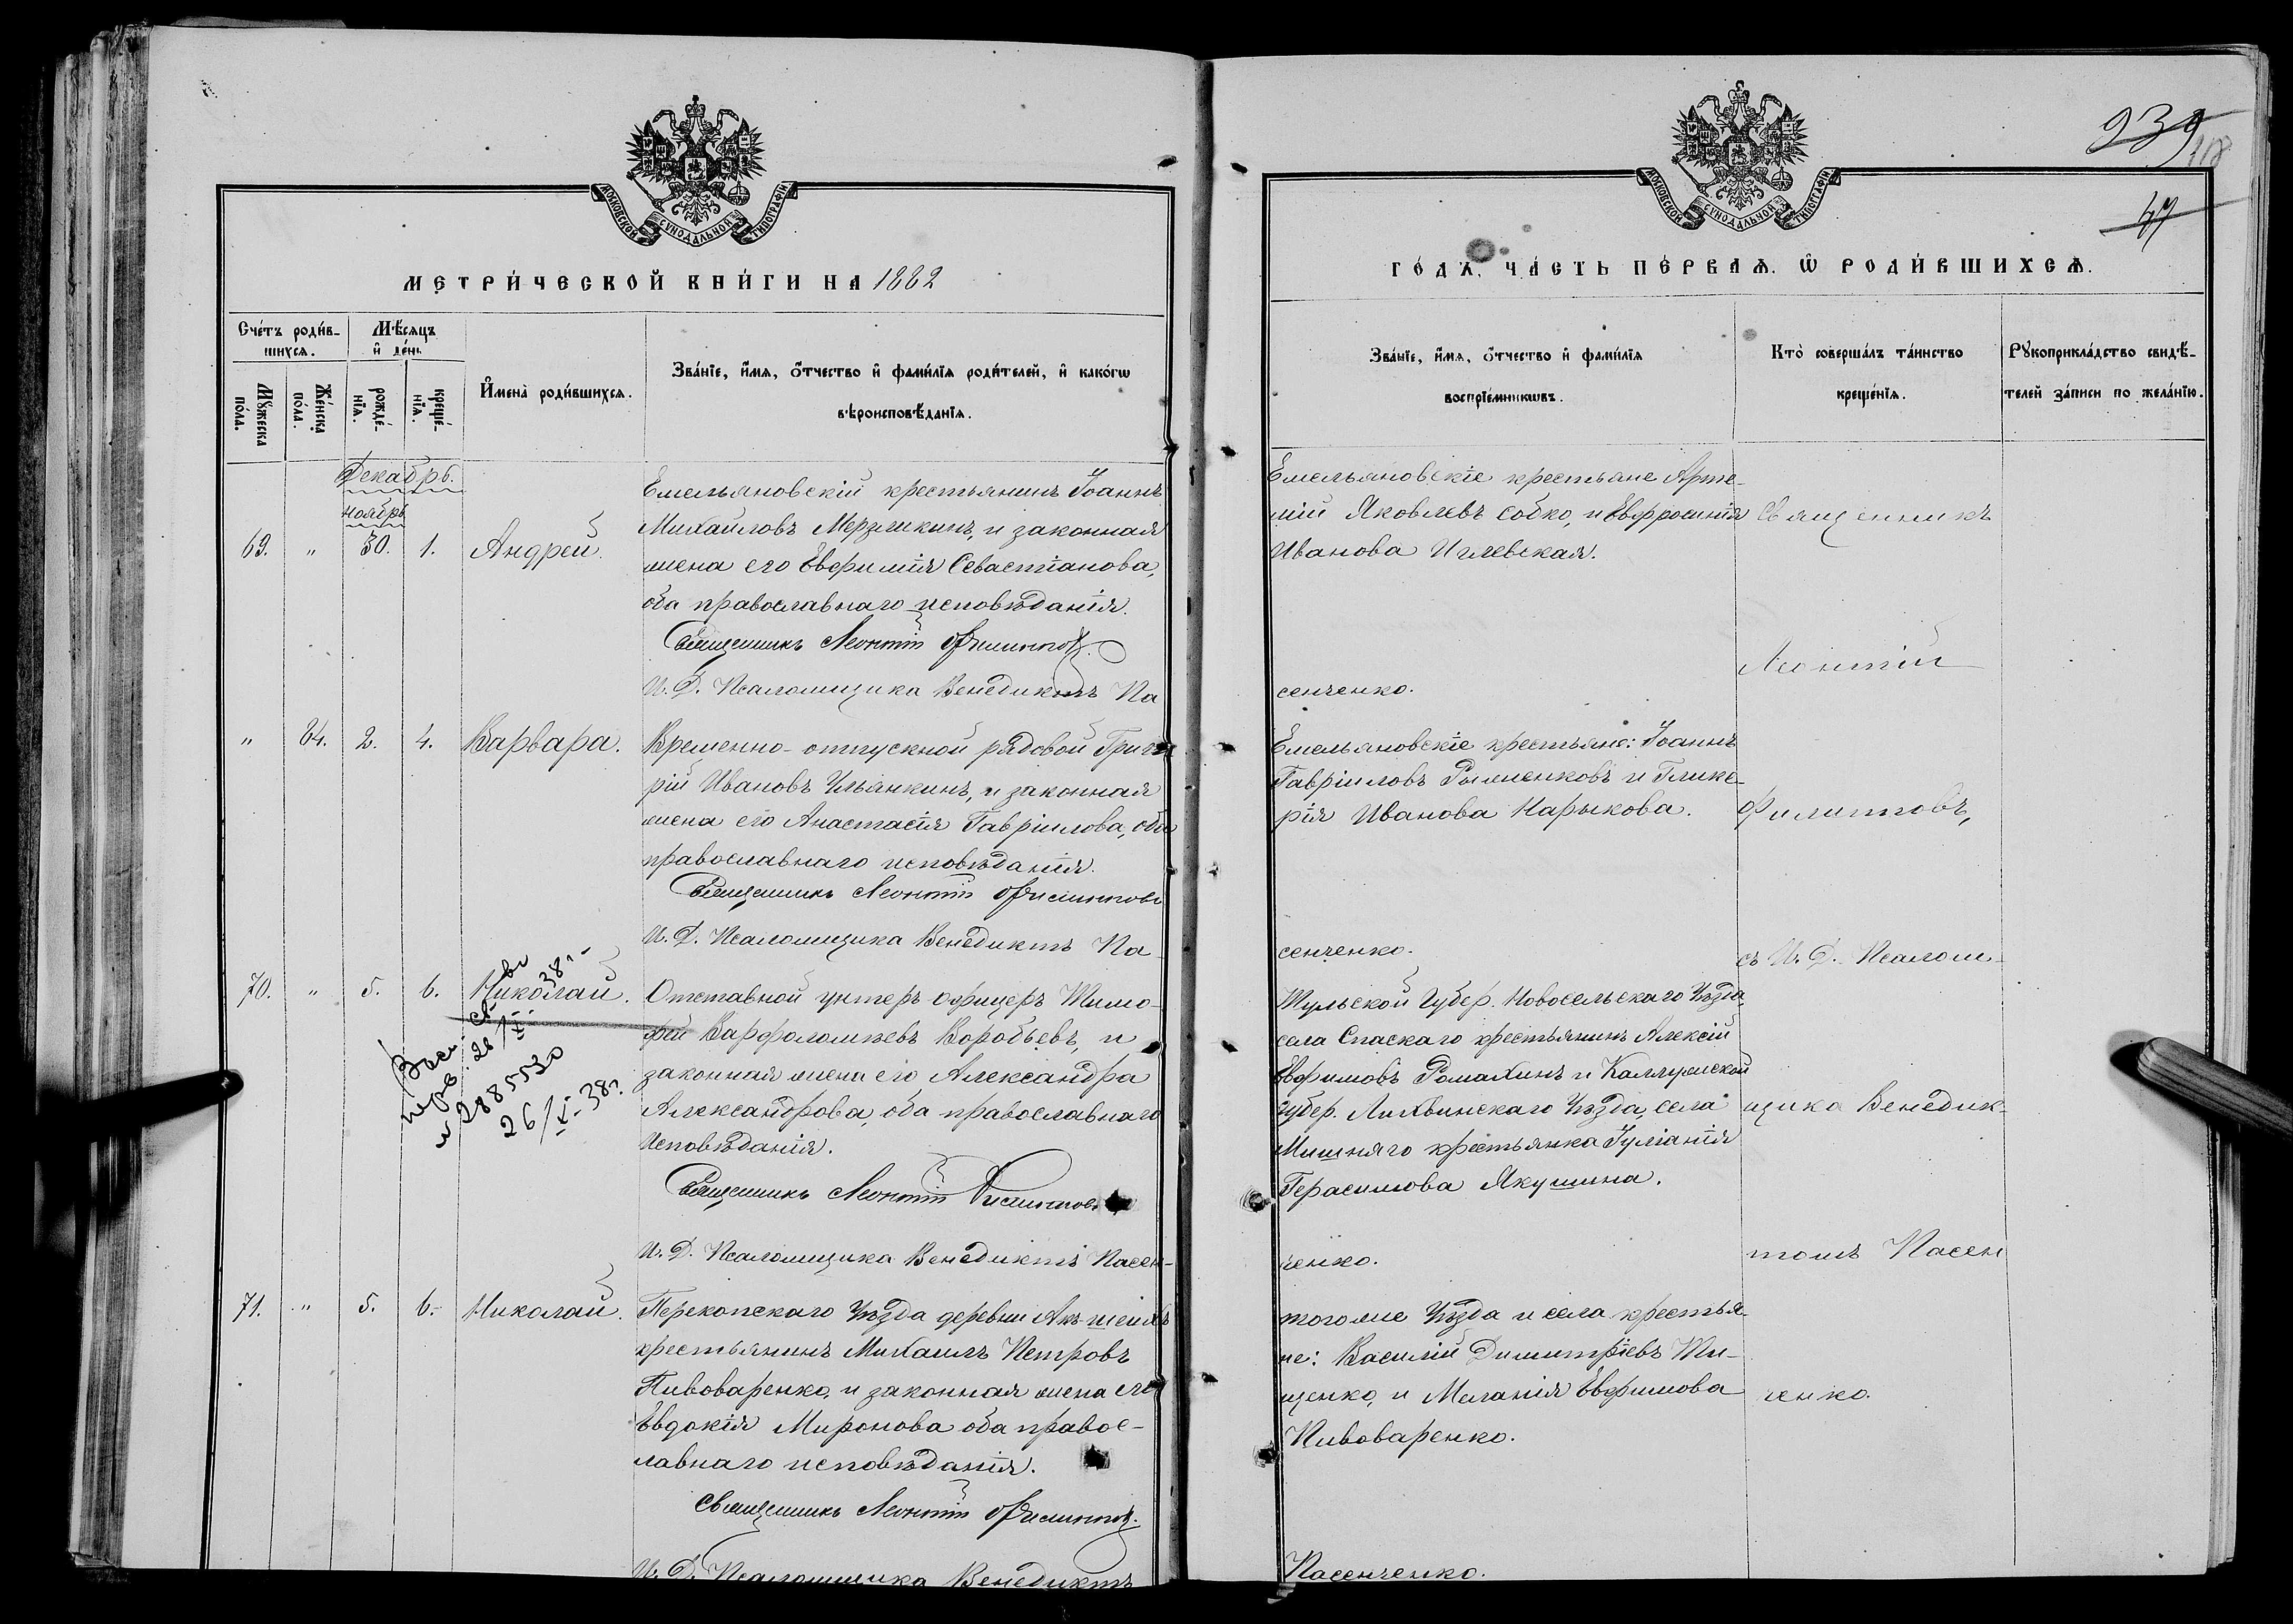 МОСКОВСКОЙ СѴНОДАЛЬНОЙ ТИПОГРАФІИ
МЕТРИ́ЧЕСКОЙ КНИ́ГИ НА 1882
Сче́тъ роди́в-
шихсѧ.
Мѣ́сяцъ
и҆ де́нь
Мꙋ́жеска
по́ла.
Же́нска
по́ла.
рожде́-
нїѧ.
креще́-
нїѧ.
И҆мена̀ роди́вшихсѧ.
Зва́нїе, и҆́мѧ, ѻ҆́тчество и҆ фами́лїѧ роди́телей, и҆ како́гѡ
вѣроисповѣ́данїѧ.
Декабрь.
ноябрь
69. " 30. 1. Андрей.
Емельяновскій крестьянинъ Іоаннъ
Михайловъ Мерзликинъ, и законная
жена его Евфимія Севастіанова,
оба православнаго исповѣданія.
Священникъ Леонтій Филипповъ.
И. Д. Псаломщика Венедиктъ Па
" 64. 2. 4. Варвара.
Временно-отпускной рядовой Григо
рій Ивановъ Ульянкинъ, и законная
жена его Анастасія Гавріилова, оба
православнаго исповѣданія.
Священникъ Леонтій Филипповъ
И. Д. Псаломщика Венедиктъ Па-
70. " 5. 6. Николай.
Отставной унтеръ офицеръ Тимо-
фей Варфоломѣевъ Воробьевъ, и
законная жена его Александра
Александрова, оба православнаго
Исповѣданія.
Священникъ Леонтій Филипповъ
И. Д. Псаломщика Венедиктъ Пасен-
38г.
26/X
№ 2885530
26/X-38г.
71. " 5. 6. Николай.
Перекопскаго Уѣзда деревни Акъ-шеихъ
крестьянинъ Михаилъ Петровъ
Пивоваренко, и законная жена его
Евдокія Миронова оба правос-
лавнаго исповѣданія.
Священникъ Леонтій Филипповъ.
И. Д. Псаломщика Венедиктъ
939
118
47
МОСКОВСКОЙ СѴНОДАЛЬНОЙ ТИПОГРАФІИ
ГО́ДА, ЧА́СТЬ ПЕ́РВАѦ. Ѽ РОДИ́ВШИХСѦ.
Зва́нїе, и҆́мѧ, ѻ҆́тчество и҆ фами́лїѧ
воспрїе́мникѡвъ.
Кто̀ соверша́лъ та́инство
креще́нїѧ.
Рꙋкоприкла́дство свидѣ́-
телей за́писи по жела́нїю.
Емельяновскіе крестьяне Арте-
мій Яковлевъ Собко, и Евфросинія
Иванова Иглевская.
сенченко.
Емельяновскіе крестьяне: Іоаннъ
Гавріиловъ Рыженковъ и Глике-
рія Иванова Карыкова.
сенченко.
Тульской Губер. Новосельскаго Уѣзда,
села Спаскаго крестьянинъ Алексій
Евфимовъ Ромахинъ и Каллужской
Губер. Лихвинскаго Уѣзда, села
Мишняго крестьянка Іуліанія
Герасимова Якушина.
ченко.
тогоже Уѣзда и села крестья-
не: Василій Димитріевъ Ти-
щенко, и Меланія Евфимова
Пивоваренко.
Пасенченко.
Священникъ
Леонтій
Филипповъ,
съ И. Д. Псалом-
щика Венедик-
томъ Пасен
ченко.